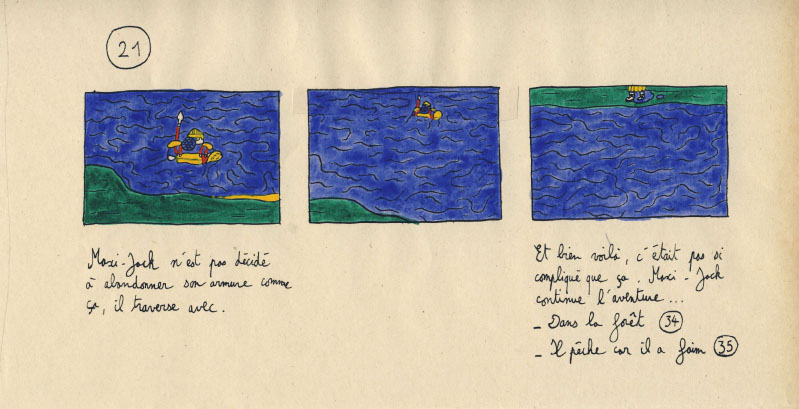 21
Maxi-Jack n'est pas décidé
à abandonner son armure comme
ça, il traverse avec.
Et bien voilà, c'était pas si
compliqué que ça. Maxi-Jack
continue l'aventure...
- Dans la forêt 34
- Il pêche car il a faim 35